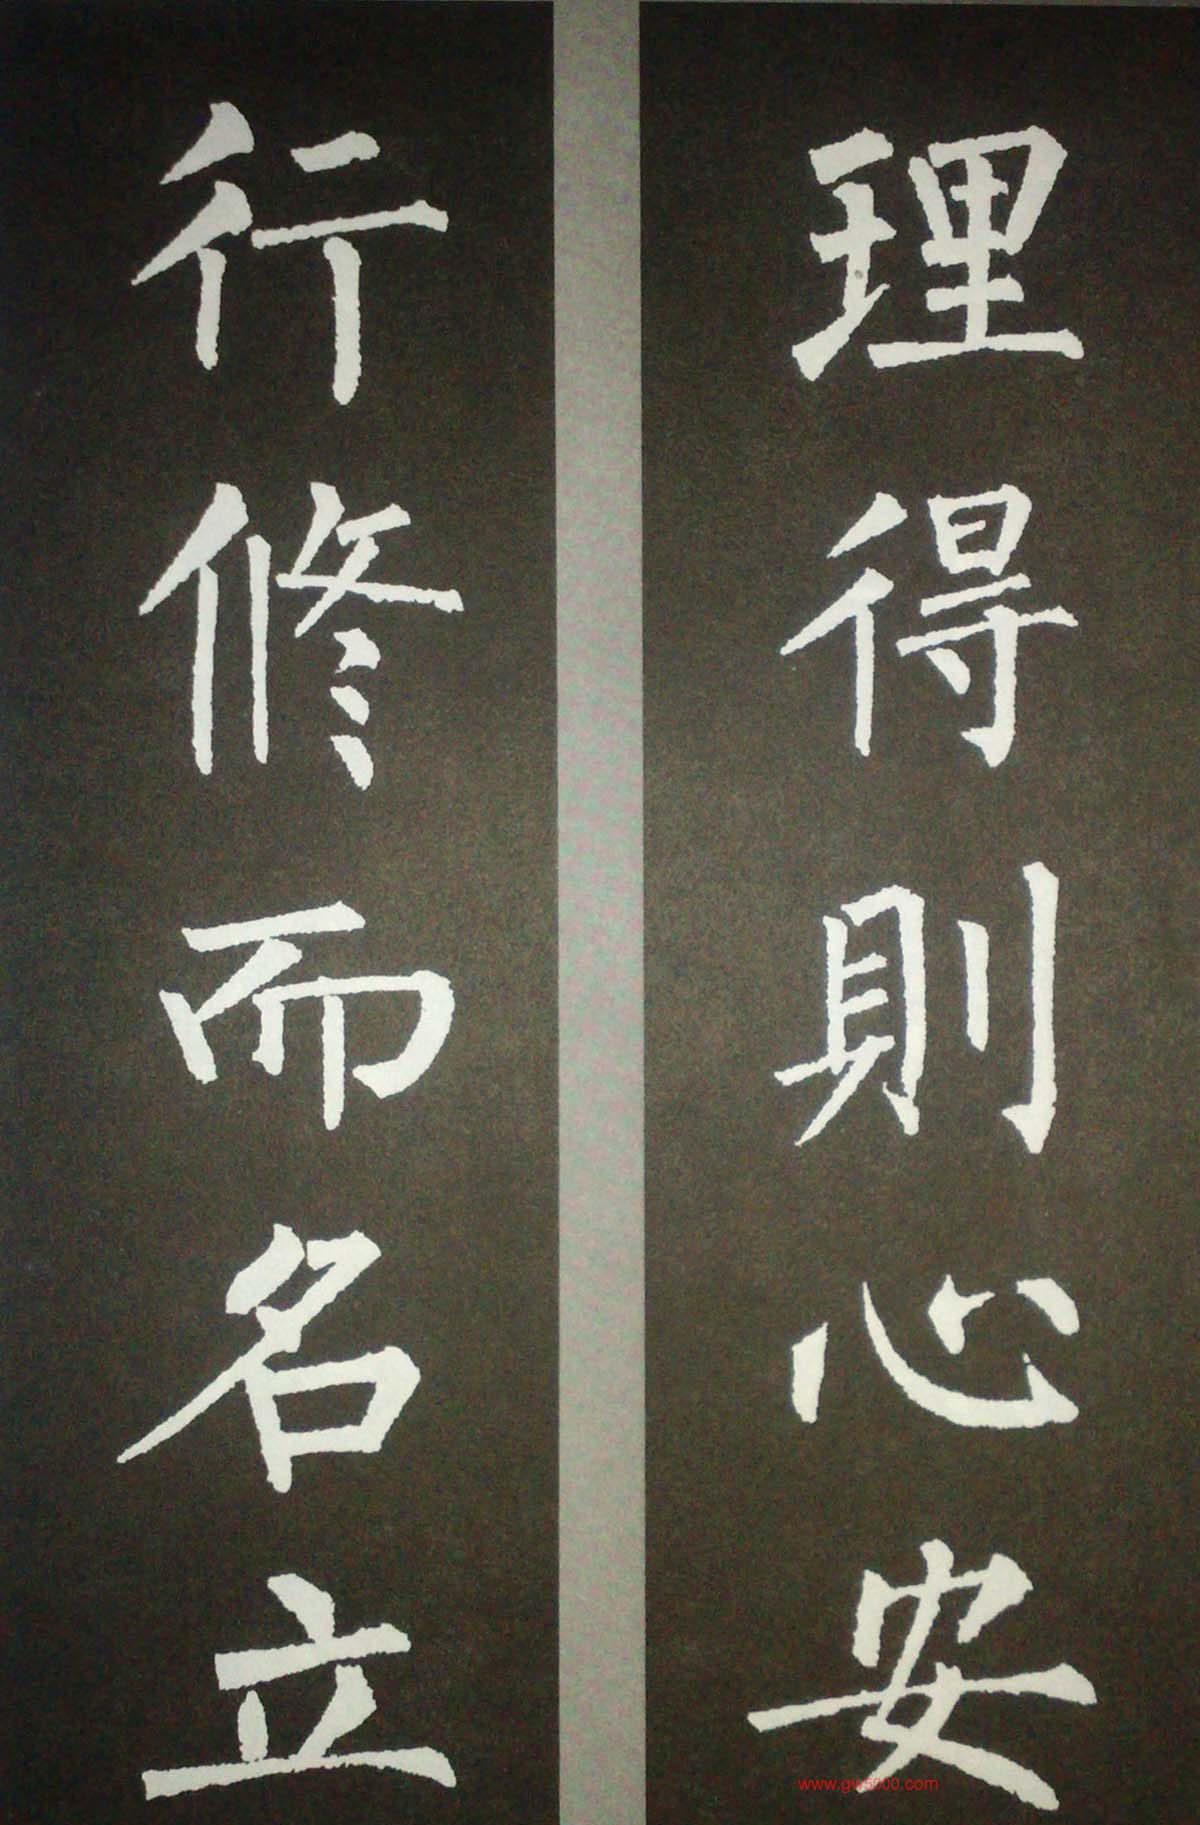 理得則心安
行修而名立
www.gw5000.com